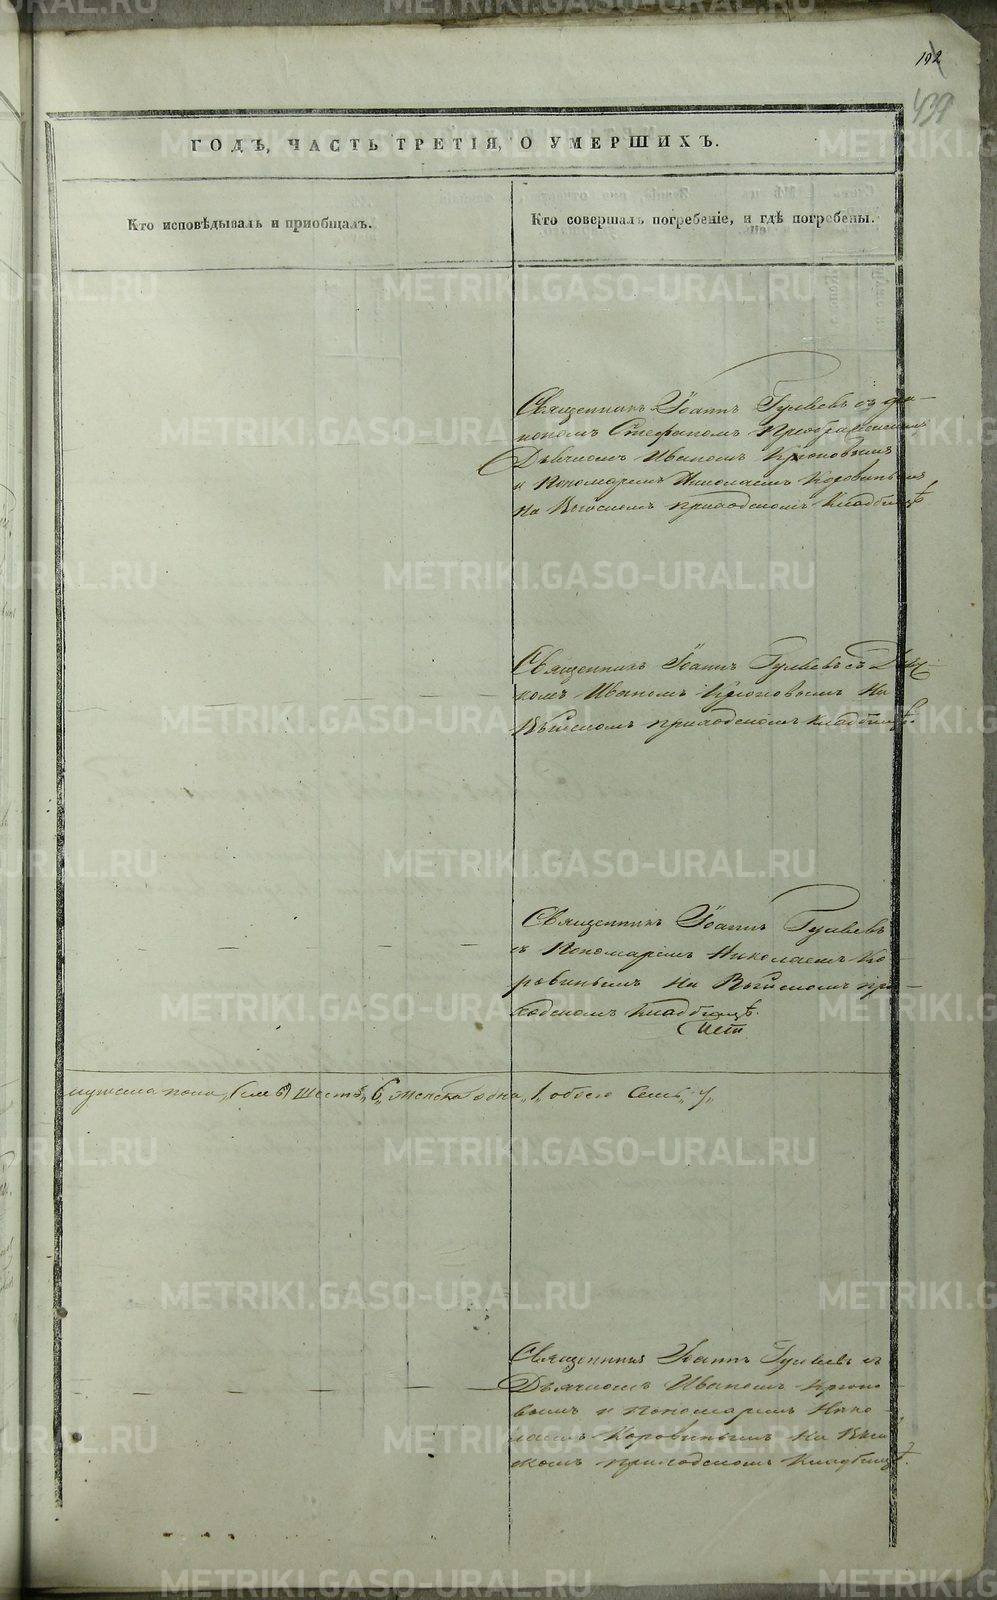 102
439
ГОДѢ, ЧАСТЬ ТРЕТІЯ, О УМЕРШИХЪ.
Кто исповѣдывалъ и приобщалъ.
Кто совершалъ погребеніе, и гдѣ погребены.
Священникъ Іоаннъ Гуляевъ съ діа-
кономъ Стефаномъ Преображенскимъ
Дьячкомъ Иваномъ Крюковымъ
и Пономаремъ Николаемъ Коровинымъ
На Выйскомъ приходскомъ кладбищѣ
Священникъ Іоаннъ Гуляевъ съ Дьяч-
комъ Иваномъ Крюковымъ На
Выйскомъ приходскомъ кладбищѣ.
Священникъ Іоаннъ Гуляевъ
съ Пономаремъ Николаемъ Ко-
ровинымъ На Выйскомъ при-
ходскомъ кладбищѣ.
мужска пола шесть 6, женска одна, 1, обоего семь, 7,
Священникъ Іоаннъ Гуляевъ съ
Дьячкомъ Иваномъ Крюко-
вымъ и Пономаремъ Нико-
лаемъ Коровинымъ На Вый-
скомъ приходскомъ Кладбищѣ.
METRIKI.GASO-URAL.RU